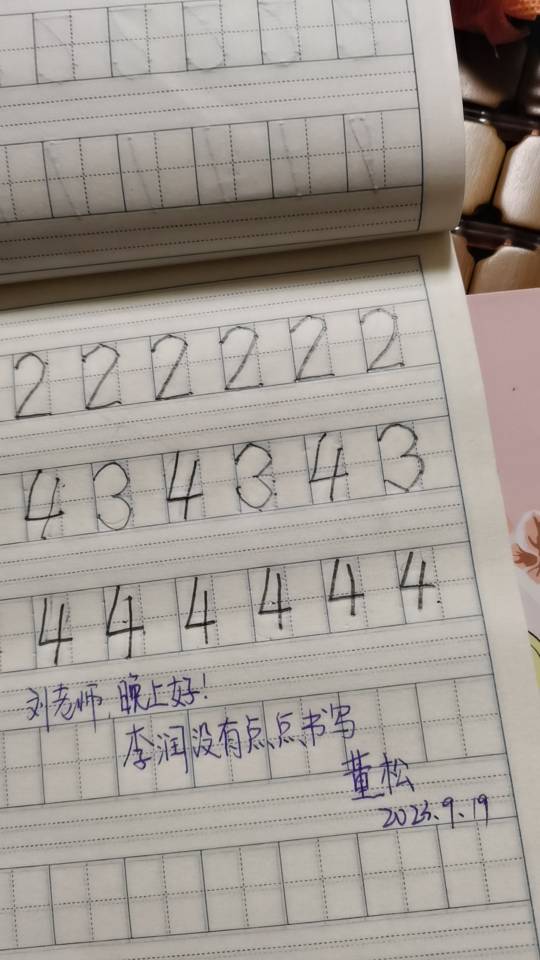 2 2 2 2 2 2
4 3 4 3 4 3
4 4 4 4 4 4
刘老师,晚上好!
李润没有点点书写
董松
2023.9.19